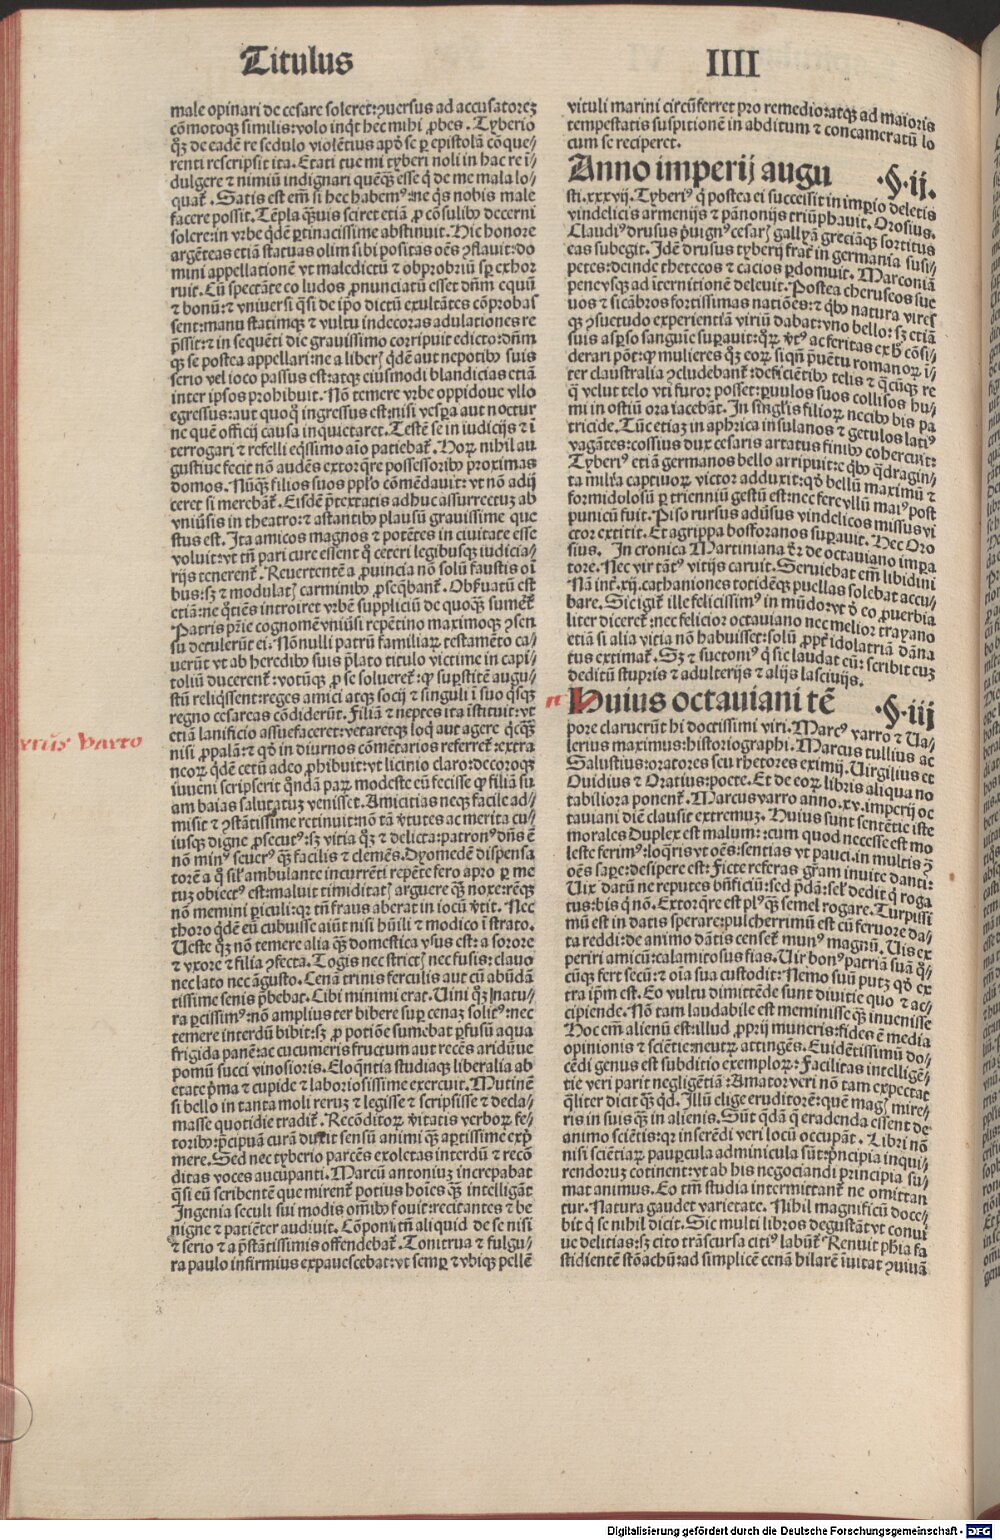 Titulus IIII
male opinari de cesare soleret: ꝯuersus ad accusatorez
cōmotoqꝫ similis: volo inqͥt hec mihi ꝓbes. Tyberio
qꝫ de eadē re sedulo violētius apᵈ se ꝑ epistolā cōque/
renti rescripsit ita. Etati tue mi tyberi noli in hac re ī/
dulgere ⁊ nimiū indignari quēqꝫ esse qͥ de me mala lo/
quat̄. Satis est em̄ si hec habemꝰ: ne qͥs nobis male
facere possit. Tēpla qͣuis sciret etiā ꝓ cōsulibꝫ decerni
solere: in vrbe qͥdē ꝑtinacissime abstinuit. Hic honore
argēteas etiā statuas olim sibi positas oēs ꝯflauit: do
mini appellationē vt maledictū ⁊ obprobriū sꝑ exhor
ruit. Cū spectāte co ludos ꝓnunciatū esset dn̄m equū
⁊ bonū: ⁊ vniuersi qͣsi de ip̄o dictū exultātes cōprobas
sent: manu statimqꝫ ⁊ vultu indecoras adulationes re
p̄ssit: ⁊ in sequēti die grauissimo corripuit edicto: dn̄m
qꝫ se postea appellari: ne a liberꝭ qͥdē aut nepotibꝫ suis
serio vel ioco passus est: atqꝫ eiusmodi blandicias etiā
inter ipsos prohibuit. Nō temere vrbe oppidoue vllo
egressus: aut quoqͣ ingressus est: nisi vesꝑa aut noctur
ne quē officij causa inquietaret. Testē se in iudicijs ⁊ ī
terrogari ⁊ refelli eqͥssimo aīo patiebat̄. Forꝝ nihil au
gustiue fecit nō audēs extorqͣre possessoribꝫ proximas
domos. Nūqꝫ filios suos pplo cōmēdauit: vt nō adij
ceret si merebāt̄. Eisdē p̄textatis adhuc assurrectuz ab
vniūsis in theatro: ⁊ astantibꝫ plausū grauissime que
stus est. Ita amicos magnos ⁊ potētes in ciuitate esse
voluit: vt tn̄ pari cure essent qͣ ceteri legibusqꝫ iudicia/
rijs tenerent̄. Reuertentē a ꝓuincia nō solū faustis oī
bus: sꝫ ⁊ modulatꝭ carminibꝫ ꝓseqͣbant̄. Obsuatū est
etiā: ne qͦtiēs introiret vrbē suppliciū de quoqͣ sumet̄.
Patris pr̄ie cognomē vniūsi repētino maximoqꝫ ꝯsen
su detulerūt ei. Nōnulli patrū familiaꝝ testamēto ca/
uerūt vt ab heredibꝫ suis p̄lato titulo victime in capi/
toliū ducerent̄: votūqꝫ ꝓ se solueret̄: qꝫ suꝑstitē augu/
stū reliqͥssent: reges amici atqꝫ socij ⁊ singuli ī suo qͥsqꝫ
regno cesareas cōdiderūt. Filiā ⁊ neptes ita īstituit: vt
etiā lanificio assuefaceret: vetaretqꝫ loqͥ aut agere qͥcqͣ
nisi ꝓpalā: ⁊ qᵒ in diurnos cōmētarios referret̄: extra
neoꝝ qͥdē cetū adeo ꝓhibuit: vt licinio claro: decoroqꝫ
iuueni scripserit qͦndā paꝝ modeste eū fecisse qꝫ filiā su
am baias salutatuz venisset. Amicitias neqꝫ facile ad/
misit ⁊ ꝯstātissime retinuit: nō tā v̄tutes ac merita cu/
iusqꝫ digne ꝓsecutꝰ: sꝫ vitia qꝫ ⁊ delicta: patronꝰ dn̄s ē
nō minꝰ seuerꝰ qͣ facilis ⁊ clemēs. Dyomedē dispensa
torē a qͦ sil̄ ambulante incurrēti repēte fero apro ꝑ me
tuz obiectꝰ est: maluit timiditatꝭ arguere qͣ noxe: rēqꝫ
nō memini ꝑiculi: qꝛ tn̄ fraus aberat in iocū v̄tit. Nec
thoro qͥdē eū cubuisse aiūt nisi hūili ⁊ modico ī strato.
Ueste qꝫ nō temere alia qͣ domestica vsus est: a sorore
⁊ vxore ⁊ filia ꝯfecta. Togis nec strictꝭ nec fusis: clauo
nec lato nec āgusto. Cenā trinis ferculis aut cū abūdā
tissime senis p̄bebat. Cibi minimi erat. Uini qꝫ natu/
ra ꝑcissimꝰ: nō amplius ter bibere suꝑ cenaz solitꝰ: nec
temere interdū bibit: sꝫ ꝓ potiōe sumebat ꝑfusū aqua
frigida panē: ac cucumeris fructum aut recēs aridūue
pomū succi vinosioris. Eloqͣntia studiaqꝫ liberalia ab
etate p̄ma ⁊ cupide ⁊ laboriosissime exercuit. Mutinē
si bello in tanta moli reruꝫ ⁊ legisse ⁊ scripsisse ⁊ decla/
masse quotidie tradit̄. Recōditoꝝ v̄itatis verboꝝ fe/
toribꝫ: p̄cipuā curā duxit sensū animi qͣ aꝑtissime exp̄
mere. Sed nec tyberio parcēs exoletas interdū ⁊ recō
ditas voces aucupanti. Marcū antoniuꝫ increpabat
qͣsi eū scribentē que mirent̄ potius hoīes qͣ intelligāt
Ingenia seculi sui modis om̄ibꝫ fouit: recitantes ⁊ be
nigne ⁊ patiēter audiuit. Cōponi tn̄ aliquid de se nisi
⁊ serio ⁊ a p̄stātissimis offendebat̄. Tonitrua ⁊ fulgu/
ra paulo infirmius expauescebat: vt semꝑ ⁊ vbiqꝫ pellē
vituli marini circūferret pro remedio: atqꝫ ad maioris
tempestatis suspitionē in abditum ⁊ concameratū lo
cum se reciperet.
Anno imperij augu §. ij.
sti. xxxvij. Tyberiꝰ qͥ postea ei successit in imꝑio deletis
vindelicis armenijs ⁊ pānonijs triūphauit. Orosius.
Claudiꝰ drusus p̄uignꝰ cesarꝭ gallyā greciāqꝫ sortitus
eas subegit. Idē drusus tyberij frat̄ in germania susi/
petes: deinde thetecos ⁊ cacios ꝑdomuit. Marconiā
peneusqꝫ ad īternitionē deleuit. Postea cheruscos sue
uos ⁊ sicābros fortissimas natiōes: ⁊ qͥbꝫ natura vires
qꝫ ꝯsuetudo experientiā viriū dabat: vno bello: sꝫ etiā
suis asꝑso sanguie suꝑauit: qͦꝝ v̄tꝰ ac feritas ex hͦ cōsi/
derari pōt: qꝫ mulieres qꝫ eoꝝ siqn̄ p̄uētu romanoꝝ ī/
ter claustralia ꝯcludebant̄: deficiētibꝫ telis ⁊ qͥcūqꝫ re
qͣ velut telo vti furor posset: ꝑuulos suos collisos hu/
mi in ostiū ora iacebāt. In singl̄is filioꝝ necibꝫ bis pa
tricide. Tūc etiaꝫ in aphrica īsulanos ⁊ getulos latiꝰ
vagātes: cossius dux cesaris artatus finibꝫ cohercuit:
Tyberiꝰ etiā germanos bello arripuit: e qͥbꝫ qͣdragin/
ta milīa captiuoꝝ victor adduxit: qᵒ bellū maximū ⁊
formidolosū ꝑ trienniū gestū est: nec fere vllū maiꝰ post
punicū fuit. Piso rursus adūsus vindelicos missus vi
ctor extitit. Et agrippa bosforanos suꝑauit. Hec Oro
sius. In cronica Martiniana d̄r de octauiano impa
tore. Nec vir tātꝰ vitijs caruit. Seruiebat em̄ libidini
Nā int̄. xij. cathaniones totidēqꝫ puellas solebat accu/
bare. Sic igit̄ ille felicissimꝰ in mūdo: vt ᵭ co ꝓuerbia
liter diceret̄: nec felicior octauiano nec melior trayano
etiā si alia vicia nō habuisset: solū ꝓpt̄ idolatriā dāna
tus extimat̄. Sꝫ ⁊ suetoniꝰ qͥ sic laudat eū: scribit cuꝫ
deditū stupris ⁊ adulterijs ⁊ alijs lasciuijs.
n Huius octauiani tē §. iij
pore claruerūt hi doctissimi viri. Marcꝰ varro ⁊ Ua/
lerius maximus: historiographi. Marcus tullius ac
Salustius: oratores seu rhetores eximij. Uirgilius et
Ouidius ⁊ Oratius: poete. Et de eoꝝ libris aliqua no
tabiliora ponent̄. Marcus varro anno. xv. imperij oc
tauiani diē clausit extremuꝫ. Huius sunt sentētie iste
morales Duplex est malum: cum quod necesse est mo
leste ferimꝰ: loqͣris vt oēs: sentias vt pauci. in multis ꝯ
oēs saꝑe: desipere est: Ficte referas gr̄am inuite danti:
Uix datū ne reputes bn̄ficiū: sed p̄dā: sel̄ dedit qͥ roga
tus: bis qͥ nō. Extorqͣre est plꝰ qͣ semel rogare. Turpissi
mū est in datis sperare: pulcherrimū est cū feruore da/
ta reddi: de animo dātis censet̄ munꝰ magnū. Uis ex
periri amicū: calamitosus fias. Uir bonꝰ patriā suā qͣ/
cūqꝫ fert secū: ⁊ oīa sua custodit: Nemo suū putꝫ qᵒ ex
tra ip̄m est. Eo vultu dimittēde sunt diuitie quo ⁊ ac/
cipiende. Nō tam laudabile est meminisse qͣ inuenisse
Hoc em̄ alienū est: illud ꝓprij muneris: fides ē media
opinionis ⁊ sciētie: neutꝝ attingēs. Euidētissimū do/
cēdi genus est subditio exemploꝝ: Facilitas intelligē/
tie veri parit negligētiā: Amator veri nō tam expectat
qͣliter dicit̄ qͣ qᵈ. Illū elige eruditorē: quē magꝭ mire/
ris in suis qͣ in alienis. Sūt qͣdā qͣ eradenda essent de
animo sciētis: qꝛ inserēdi veri locū occupāt. Libri nō
nisi sciētiaꝝ paupercula adminicula sūt: p̄ncipia inqui/
rendoruꝫ cōtinent: vt ab his negociandi principia su/
mat animus. Eo tm̄ studia intermittant̄ ne omittan
tur. Natura gaudet varietate. Nihil magnificū doce/
bit qͥ se nihil dicit. Sic multi libros degustāt vt conui
ue delitias: sꝫ cito trāscursa citiꝰ labūt̄. Renuit phīa fa
stidientē stōachū: ad simplicē cenā hilarē īuitat ꝯuiuā
Varro
Digitalisierung gefördert durch die Deutsche Forschungsgemeinschaft - DFG